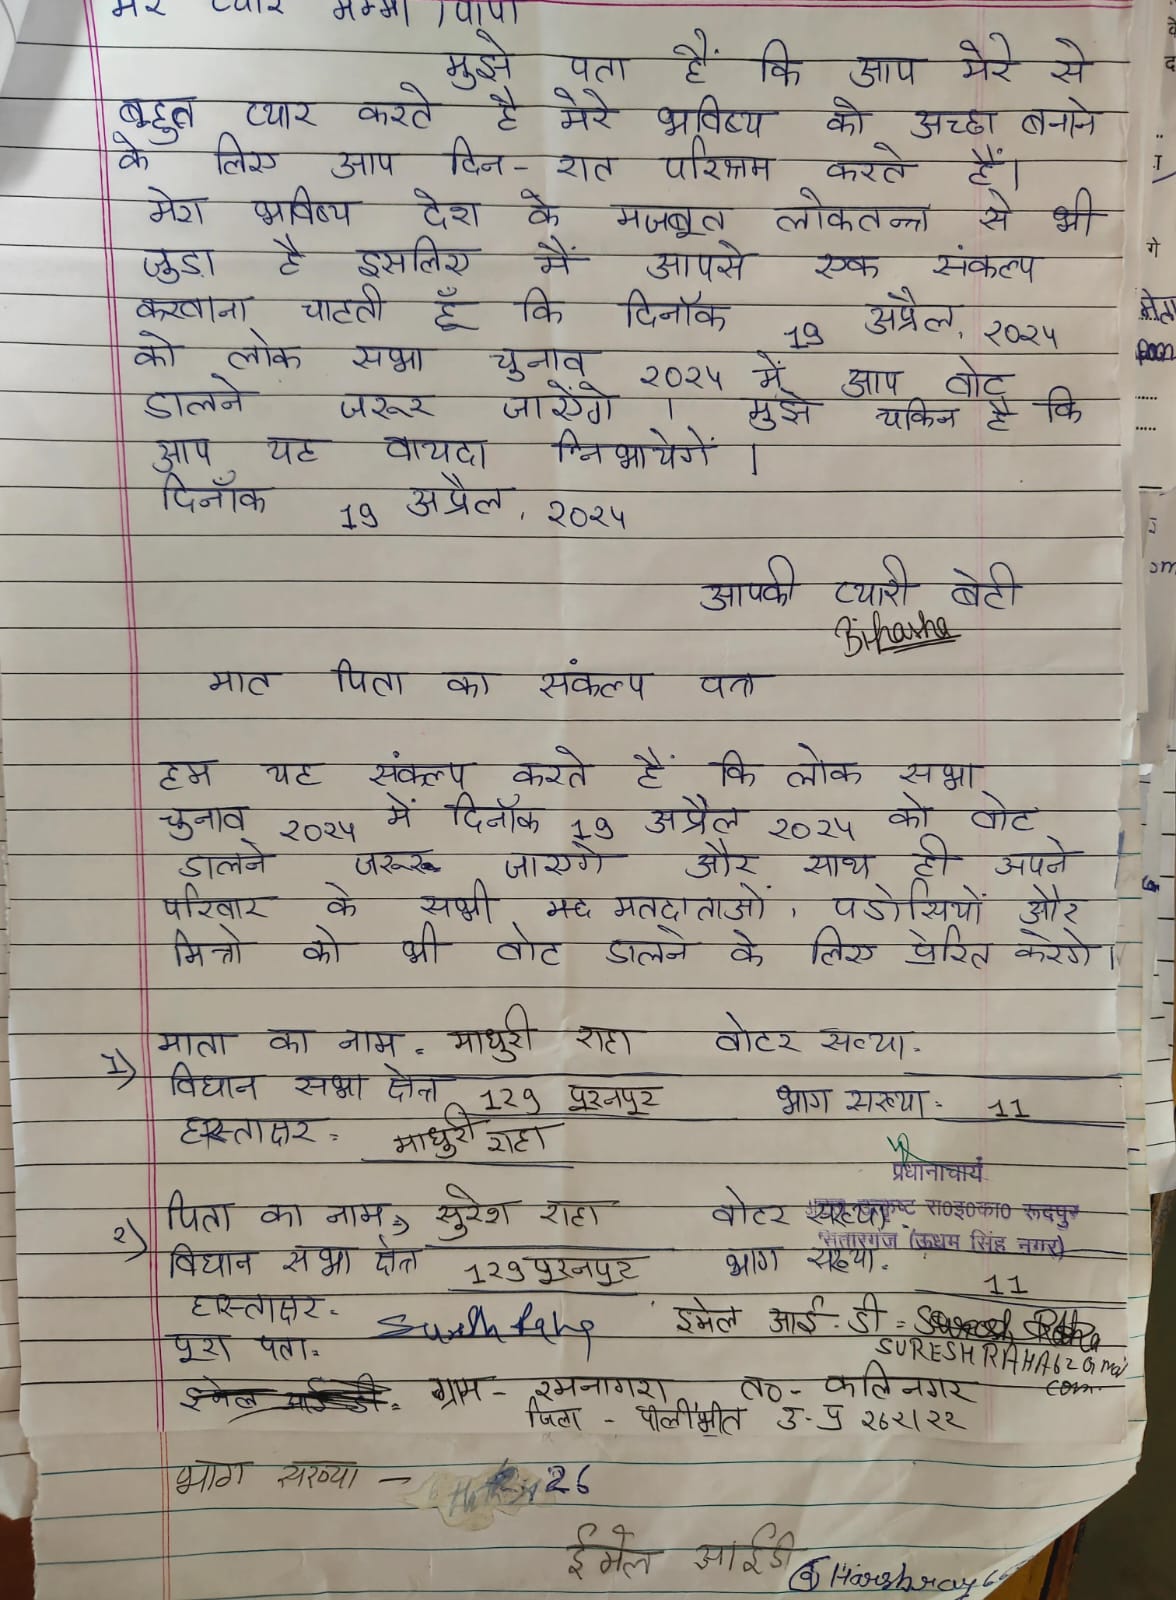 मेरे प्यारे मम्मी / पापा
मुझे पता हैं कि आप मेरे से
बहुत प्यार करते है मेरे भविष्य को अच्छा बनाने
के लिए आप दिन - रात परिश्रम करते हैं।
मेरा भविष्य देश के मजबूत लोकतन्त्र से भी
जुड़ा है इसलिए मैं आपसे एक संकल्प
करवाना चाहती हूँ कि दिनाँक 19 अप्रैल, २०२५
को लोक सभा चुनाव २०२५ में आप वोट
डालने जरूर जाएंगे । मुझे यकिन है कि
आप यह वायदा निभायेगें ।
दिनाँक 19 अप्रैल, २०२५
आपकी प्यारी बेटी
मात पिता का संकल्प पत्र
हम यह संकल्प करते हैं कि लोक सभा
चुनाव २०२५ में दिनाँक 19 अप्रैल २०२५ को वोट
डालने जरूर जाएगे और साथ ही अपने
परिवार के सभी मतदाताओं, पडोसियों और
मित्रो को भी वोट डालने के लिए प्रेरित करेगे।
1) माता का नाम = माधुरी राहा वोटर सख्या.
विधान सभा क्षेत्र 129 पूरनपूर भाग सख्या = 11
हस्ताक्षर = माधुरी राहा
प्रधानाचार्य
२) पिता का नाम = सुरेश राहा वोटर सख्या
उत्कृष्ट रा०इ०का० रूदपुर
सितारगंज (ऊधम सिंह नगर)
विधान सभा क्षेत्र 129 पूरनपुर भाग सख्या. 11
हस्ताक्षर = इमेल आई-डी =
पूरा पता = SURESHRAHA62
com
ग्राम - रमनागरा त० - कलिनगर
जिला - पीलीभीत उ-प्र २६२१२२
भाग सख्या - 26
ईमेल आईडी